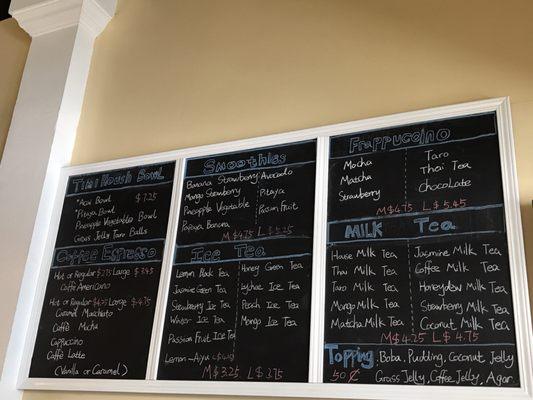 Bowl
*Acai Bowl $7.25
*Pitaya Bowl
Pineapple Vegetable Bowl
Grass Jelly Taro Balls
Coffee Espresso
Hot or Regular $2.75 Large $3.45
Caffe Americano
Hot or Regular $4.25 Large $4.75
Caramel Macchiato
Caffe Mocha
Cappuccino
Caffe Latte
(Vanilla or Caramel)
Smoothies
Banana Strawberry
Mango Strawberry
Pineapple Vegetable
Papaya Banana
Avocado
Pitaya
Passion Fruit
M $4.75 L $5.25
Ice Tea
Lemon Black Tea
Jasmine Green Tea
Strawberry Ice Tea
Winter Ice Tea
Passion Fruit Ice Tea
Lemon-Aiyu
Honey Green Tea
Lychee Ice Tea
Peach Ice Tea
Mango Ice Tea
M $3.25 L $3.75
Frappuccino
Mocha
Matcha
Strawberry
Taro
Thai Tea
Chocolate
M $4.75 L $5.45
Milk Tea
House Milk Tea
Thai Milk Tea
Taro Milk Tea
Mango Milk Tea
Matcha Milk Tea
Jasmine Milk Tea
Coffee Milk Tea
Honeydew Milk Tea
Strawberry Milk Tea
Coconut Milk Tea
M $4.25 L $4.75
Topping Boba, Pudding, Coconut Jelly
50¢ Grass Jelly, Coffee Jelly, Agar